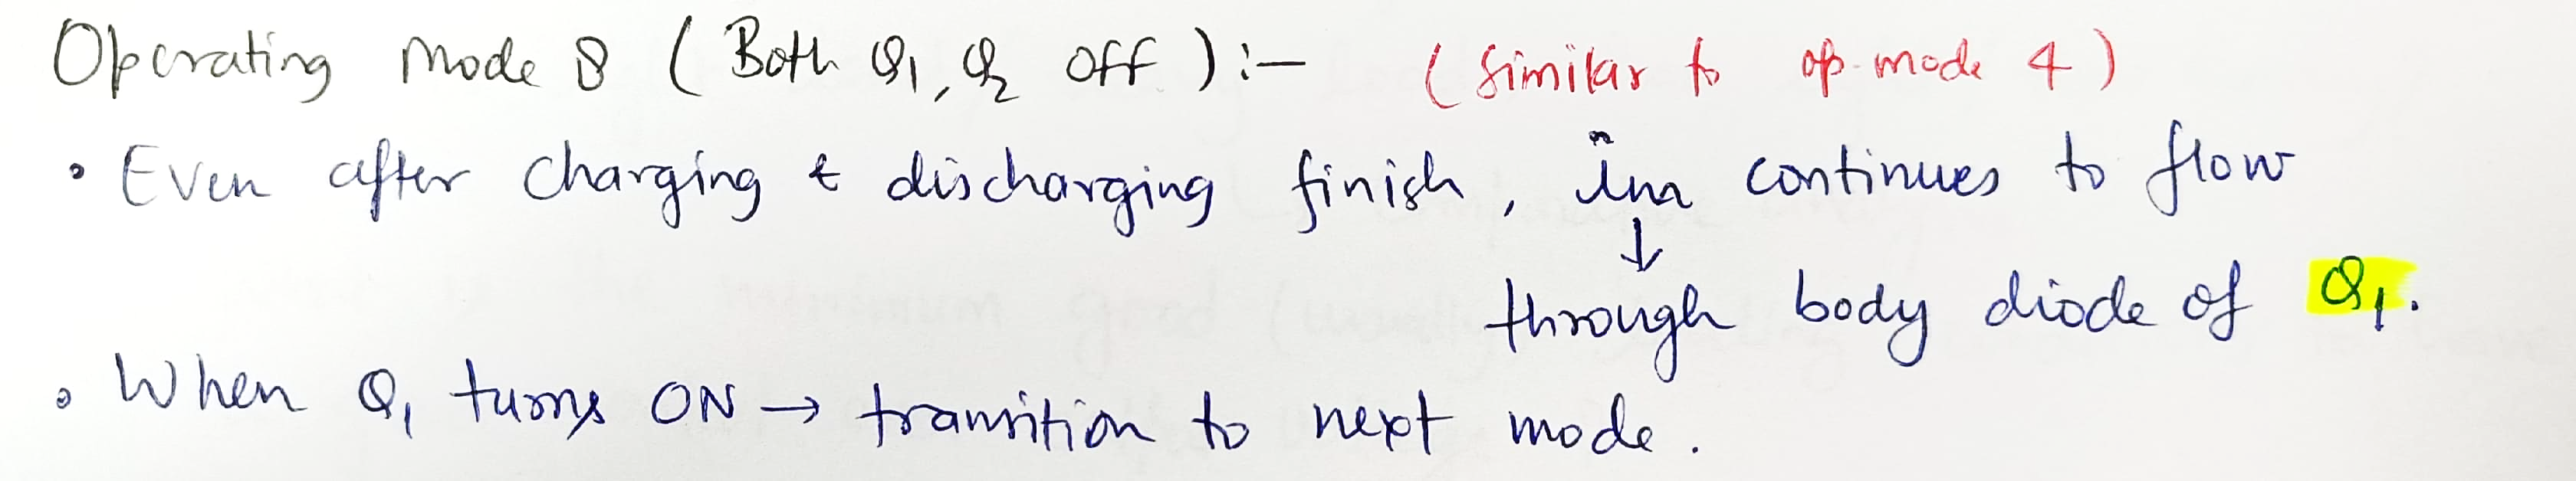 Operating Mode 8 ( Both Q1, Q2 Off ) :- ( Similar to op. mode 4 )
• Even after charging & discharging finish, im continues to flow
↓
through body diode of Q1.
• When Q1 turns ON → transition to next mode.